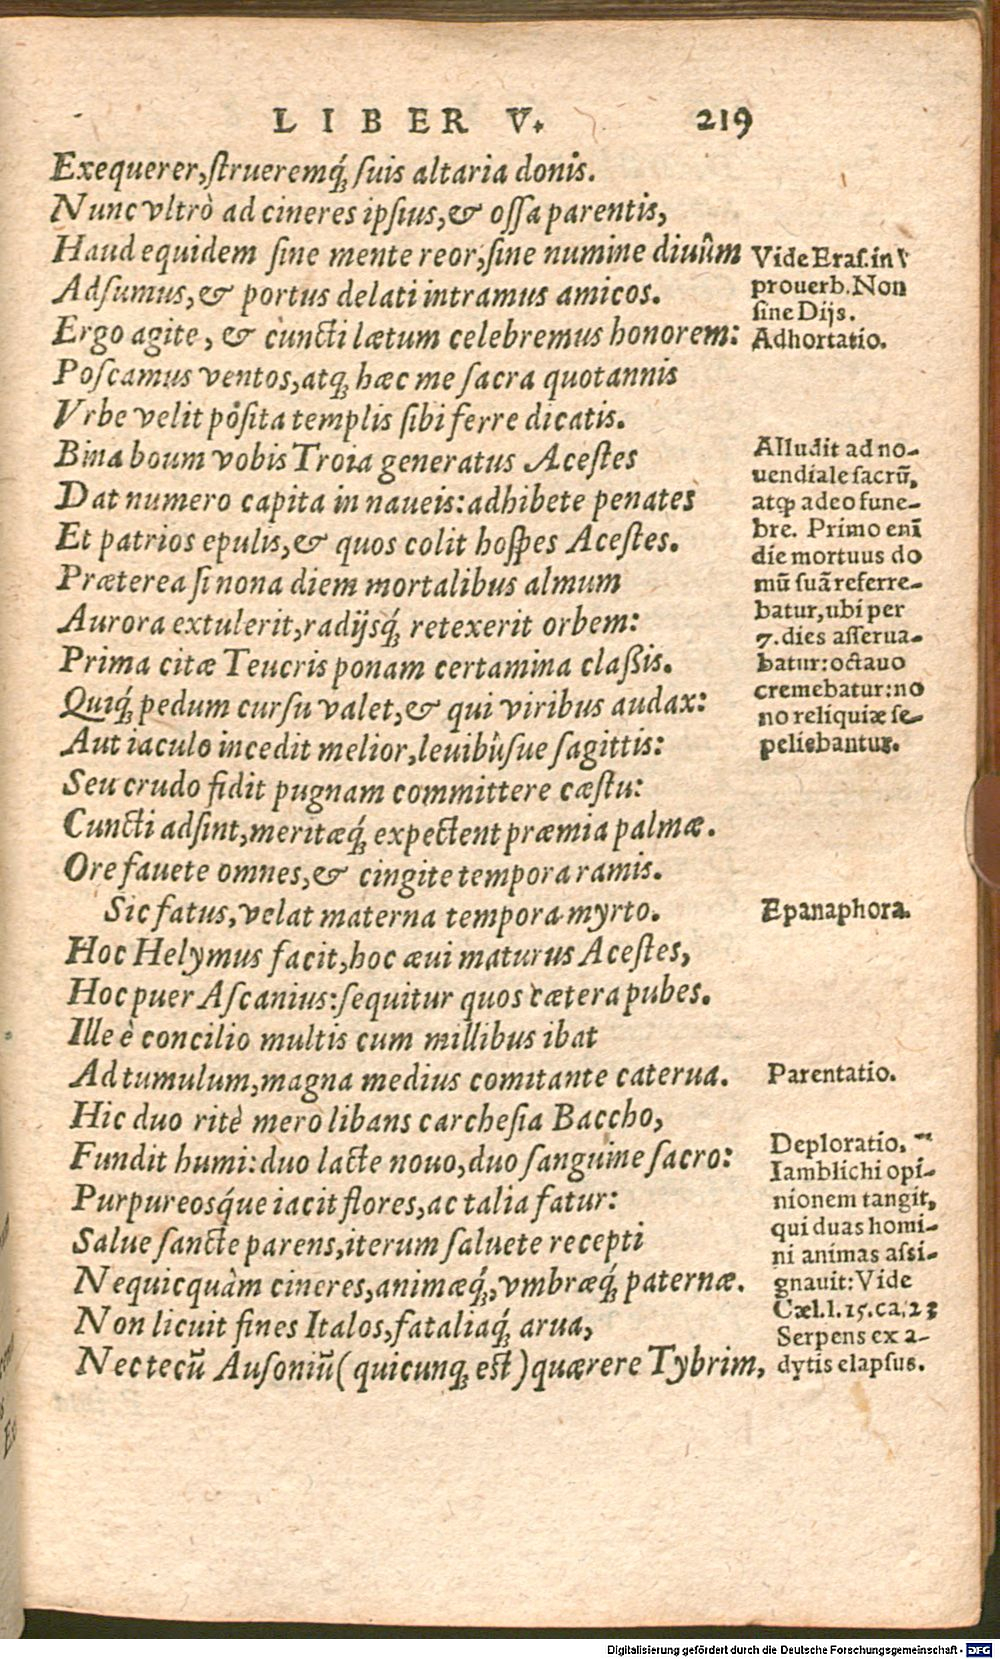 LIBER V. 219
Exequerer, strueremq́; suis altaria donis.
Nunc vltrò ad cineres ipsius, & ossa parentis,
Haud equidem sine mente reor, sine numine diuûm
Adsumus, & portus delati intramus amicos.
Ergo agite, & cuncti lætum celebremus honorem:
Poscamus ventos, atq; hæc me sacra quotannis
Vrbe velit posita templis sibi ferre dicatis.
Bina boum vobis Troia generatus Acestes
Dat numero capita in naueis: adhibete penates
Et patrios epulis, & quos colit hospes Acestes.
Præterea si nona diem mortalibus almum
Aurora extulerit, radijsq́; retexerit orbem:
Prima citæ Teucris ponam certamina claßis.
Quiq́; pedum cursu valet, & qui viribus audax:
Aut iaculo incedit melior, leuibûsue sagittis:
Seu crudo fidit pugnam committere cæstu:
Cuncti adsint, meritæq́; expectent præmia palmæ.
Ore fauete omnes, & cingite tempora ramis.
Sic fatus, velat materna tempora myrto.
Hoc Helymus facit, hoc æui maturus Acestes,
Hoc puer Ascanius: sequitur quos cætera pubes.
Ille è concilio multis cum millibus ibat
Ad tumulum, magna medius comitante caterua.
Hic duo ritè mero libans carchesia Baccho,
Fundit humi: duo lacte nouo, duo sanguine sacro:
Purpureosq́ue iacit flores, ac talia fatur:
Salue sancte parens, iterum saluete recepti
Nequicquàm cineres, animæq́;, vmbræq́; paternæ.
Non licuit fines Italos, fataliaq́; arua,
Nec tecũ Ausoniũ (quicunq; est) quærere Tybrim,
Vide Eras. in
prouerb. Non
sine Dijs.
Adhortatio.
Alludit ad no-
uendiale sacrũ,
atq; adeo fune-
bre. Primo enĩ
die mortuus do
mũ suã referre-
batur, ubi per
7. dies asserua-
batur: octauo
cremebatur: no
no reliquiæ se-
peliebantur.
Epanaphora.
Parentatio.
Deploratio.
Iamblichi opi-
nionem tangit,
qui duas homi-
ni animas assi-
gnauit: Vide
Cæl. l. 15. ca. 23
Serpens ex a-
dytis elapsus.
Digitalisierung gefördert durch die Deutsche Forschungsgemeinschaft - DFG